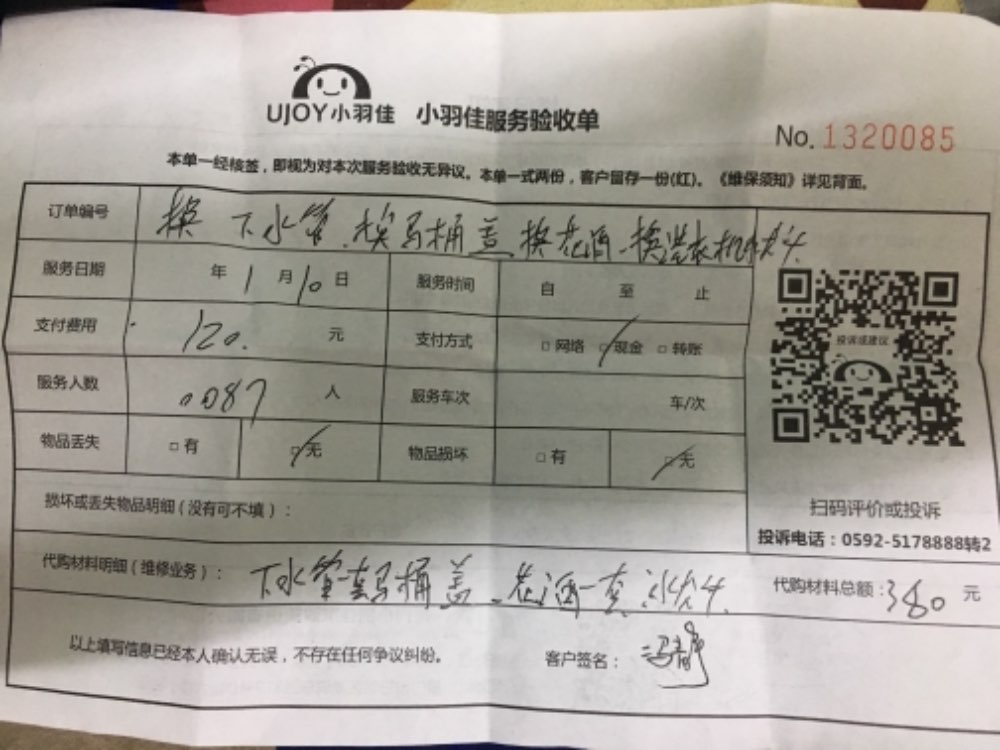 UJOY小羽佳 小羽佳服务验收单
No. 1320085
本单一经核签，即视为对本次服务验收无异议。本单一式两份，客户留存一份(红)。《维保须知》详见背面。
订单编号 换下水管、换马桶盖、换花洒、换洗衣机水龙头
服务日期 年 1 月 10 日 服务时间 自 至 止
支付费用 120. 元 支付方式 □网络 □现金 □转账
服务人数 .087 人 服务车次 车/次
物品丢失 □有 □无 物品损坏 □有 □无
投诉或建议
损坏或丢失物品明细（没有可不填）：
扫码评价或投诉
投诉电话：0592-5178888转2
代购材料明细（维修业务）： 下水管一套马桶盖、花洒一套 代购材料总额：380 元
以上填写信息已经本人确认无误，不存在任何争议纠纷。 客户签名：